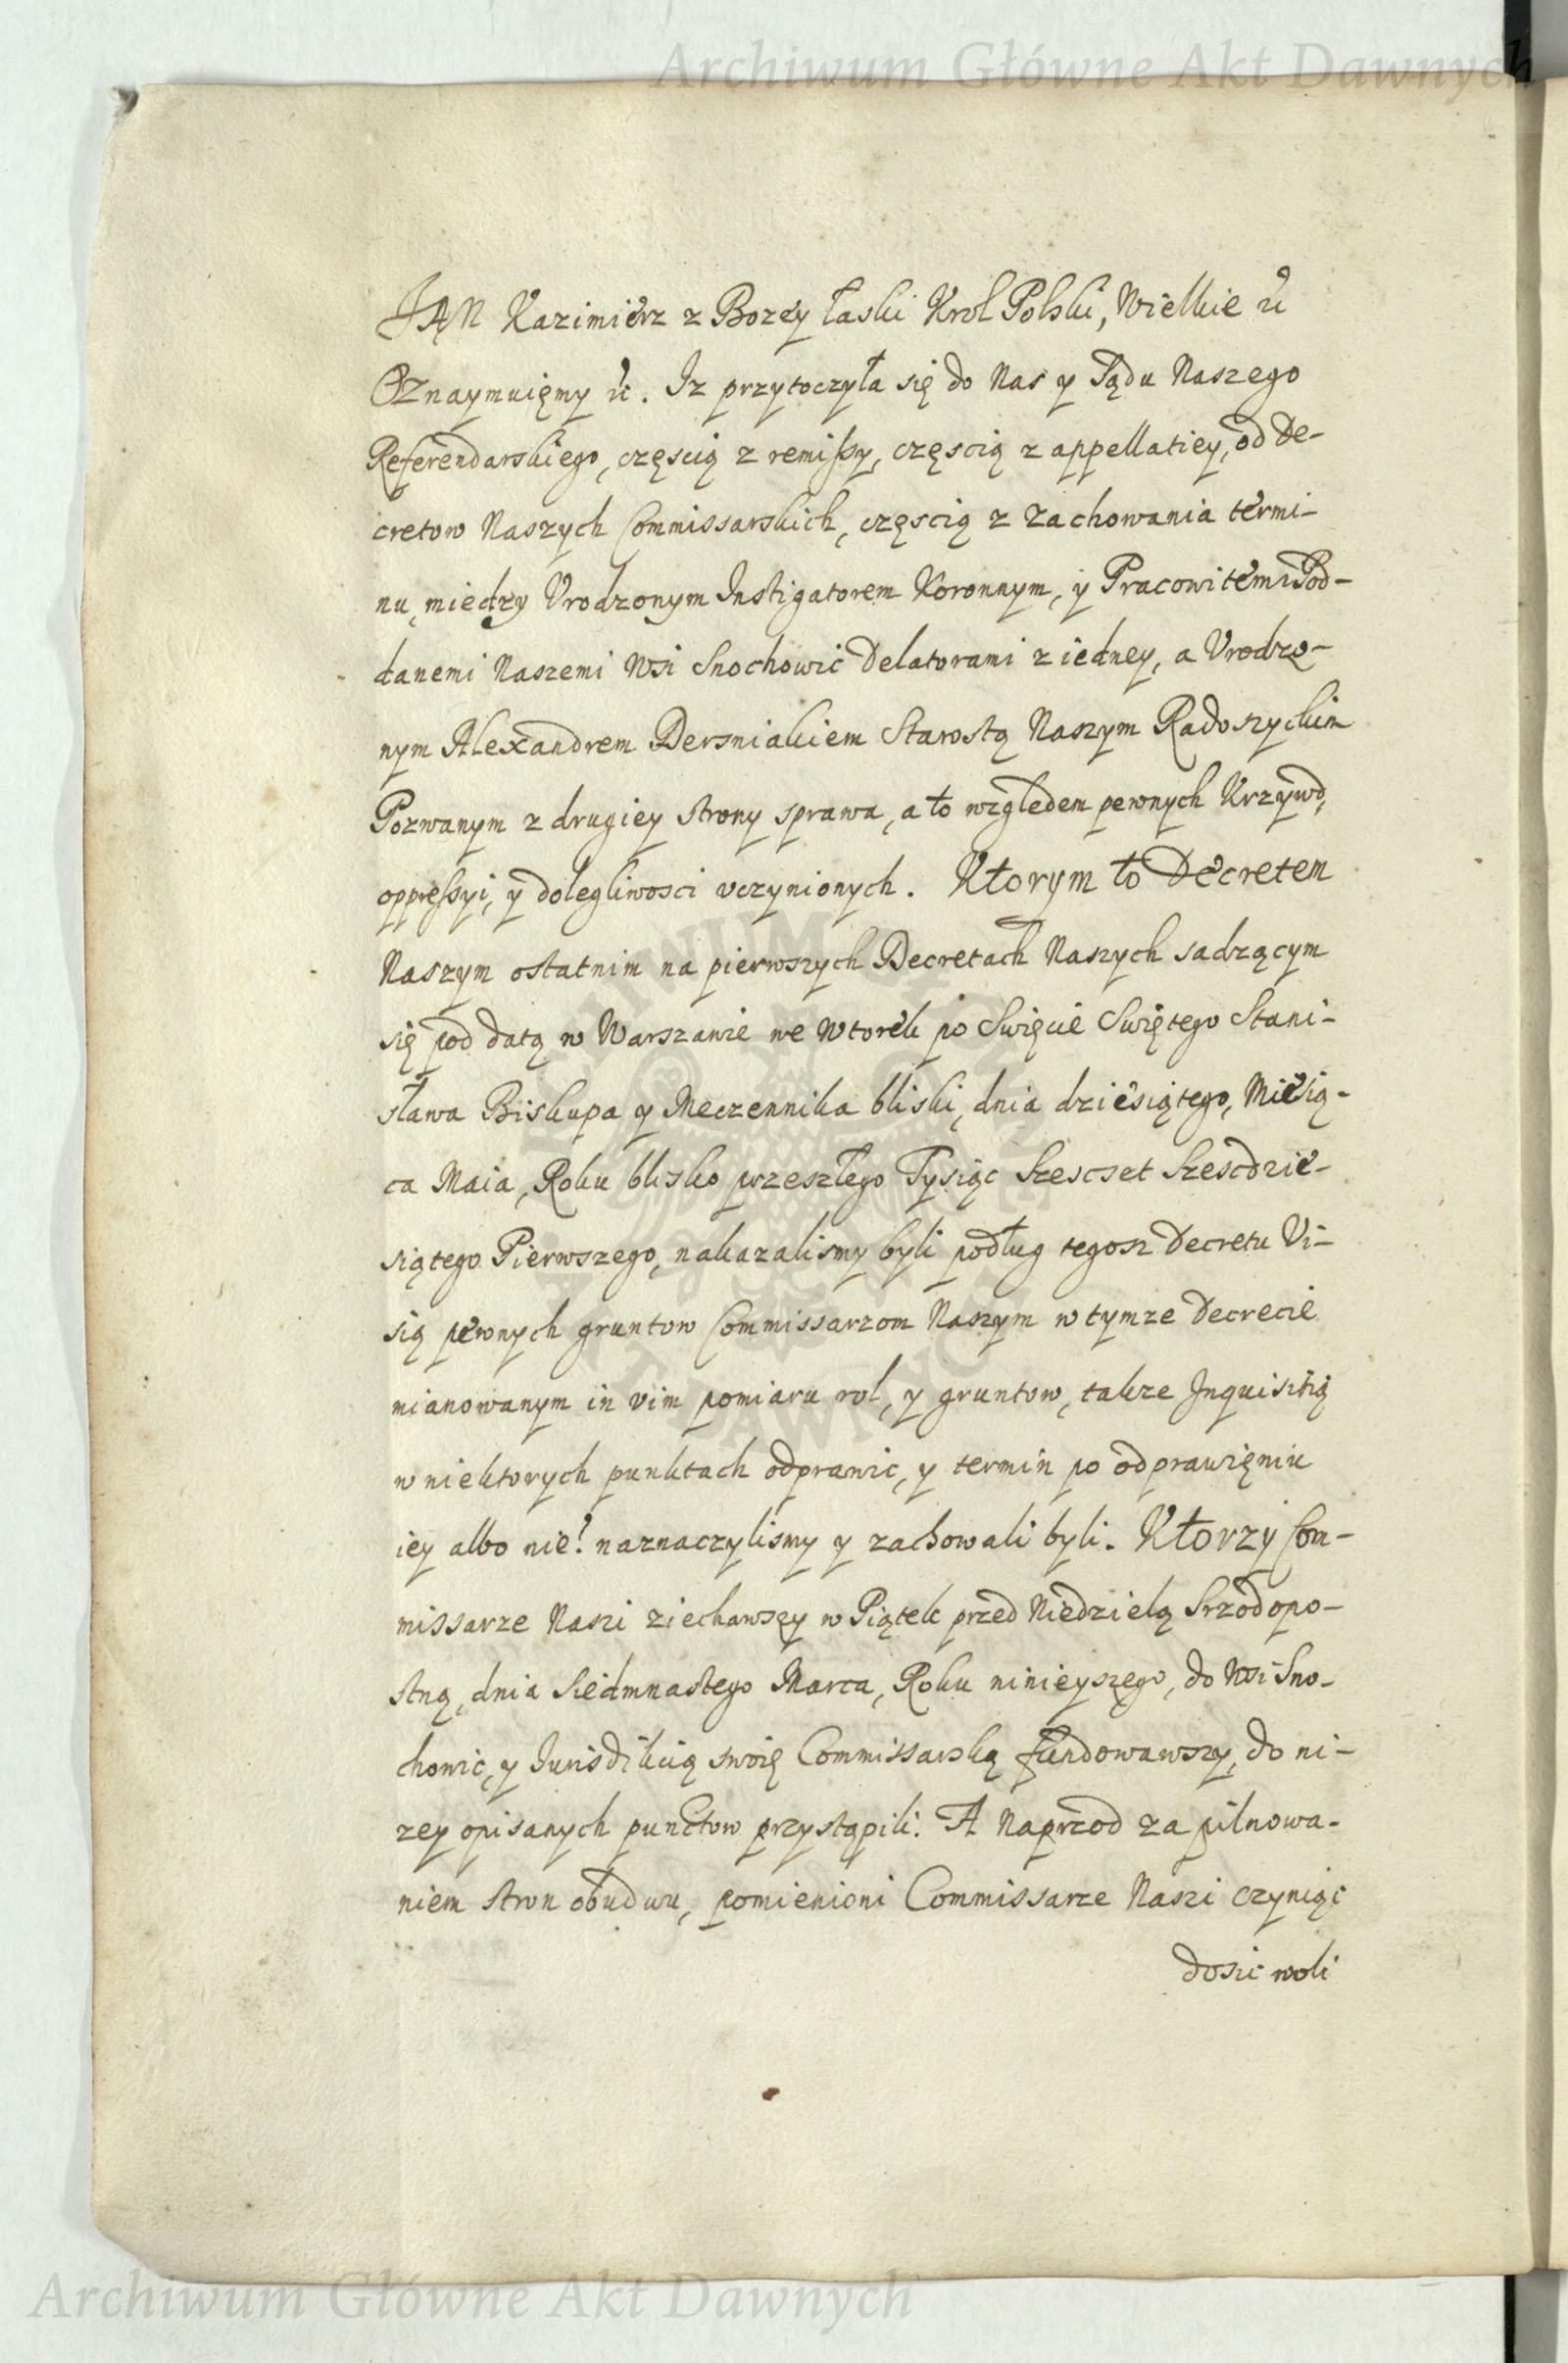 Archiwum Główne Akt Dawnych
JAN Kazimierz z Bozey łaski Krol Polski, Wielkie &c
Oznaymuięmy &c. Iz przytoczyła się do Nas y Sądu Naszego
Referendarskiego, częscią z remissy, częscią z appellatiey, od De-
cretow Naszych Commissarskich, częscią z zachowania termi-
nu, miedzy Vrodzonym Instigatorem Koronnym, y Pracowitemi Pod-
danemi Naszemi Wsi Snochowic Delatorami z iedney, a Vrodzo-
nym Alexandrem Dersniakiem Starostą Naszym Radoszyckim
Pozwanym z drugiey strony sprawa, a to względem pewnych Krzywd,
oppressyi, y dolegliwosci vczynionych. Ktorym to Decretem
Naszym ostatnim na pierwszych Decretach Naszych sadzącym
się pod datą w Warszawie we Wtorek po Swięcie Swiętego Stani-
sława Biskupa y Meczennika bliski, dnia dziesiątego, Miesią-
ca Maia, Roku blisko przeszłego Tysiąc Szescset Szescdzie-
siątego Pierwszego, nakazalismy byli podług tegosz Decretu Vi-
sią pewnych gruntow Commissarzom Naszym w tymze Decrecie
mianowanym in vim pomiaru rol, y gruntow, takze Inquisitią
w niektorych punktach odprawic, y termin po odprawięniu
iey albo nie! naznaczylismy y zachowali byli. Ktorzy Com-
missarze Naszi ziechawszy w Piątek przed Niedzielą Srzodopo-
stną, dnia Siedmnastego Marca, Roku ninieyszego, do Wsi Sno-
chowic, y Jurisdikcią swoię Commissarską fundowawszy, do ni-
zey opisanych punctow przystąpili. A naprzod za pilnowa-
niem stron obudwu, pomienioni Commissarze Naszi czyniąc
dosic woli
Archiwum Główne Akt Dawnych